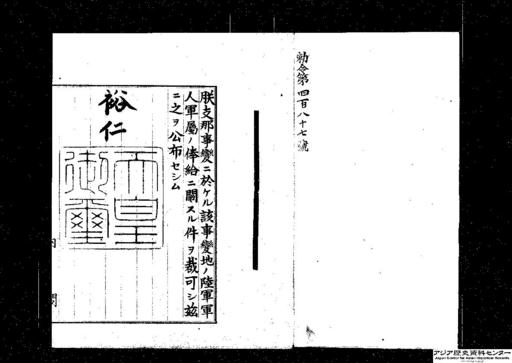 勅令第四百八十七號
朕支那事變ニ於ケル該事變地ノ陸軍軍
人軍屬ノ俸給ニ關スル件ヲ裁可シ茲
ニ之ヲ公布セシム
裕仁
天皇
御璽
内閣
アジア歴史資料センター
Japan Center for Asian Historical Records